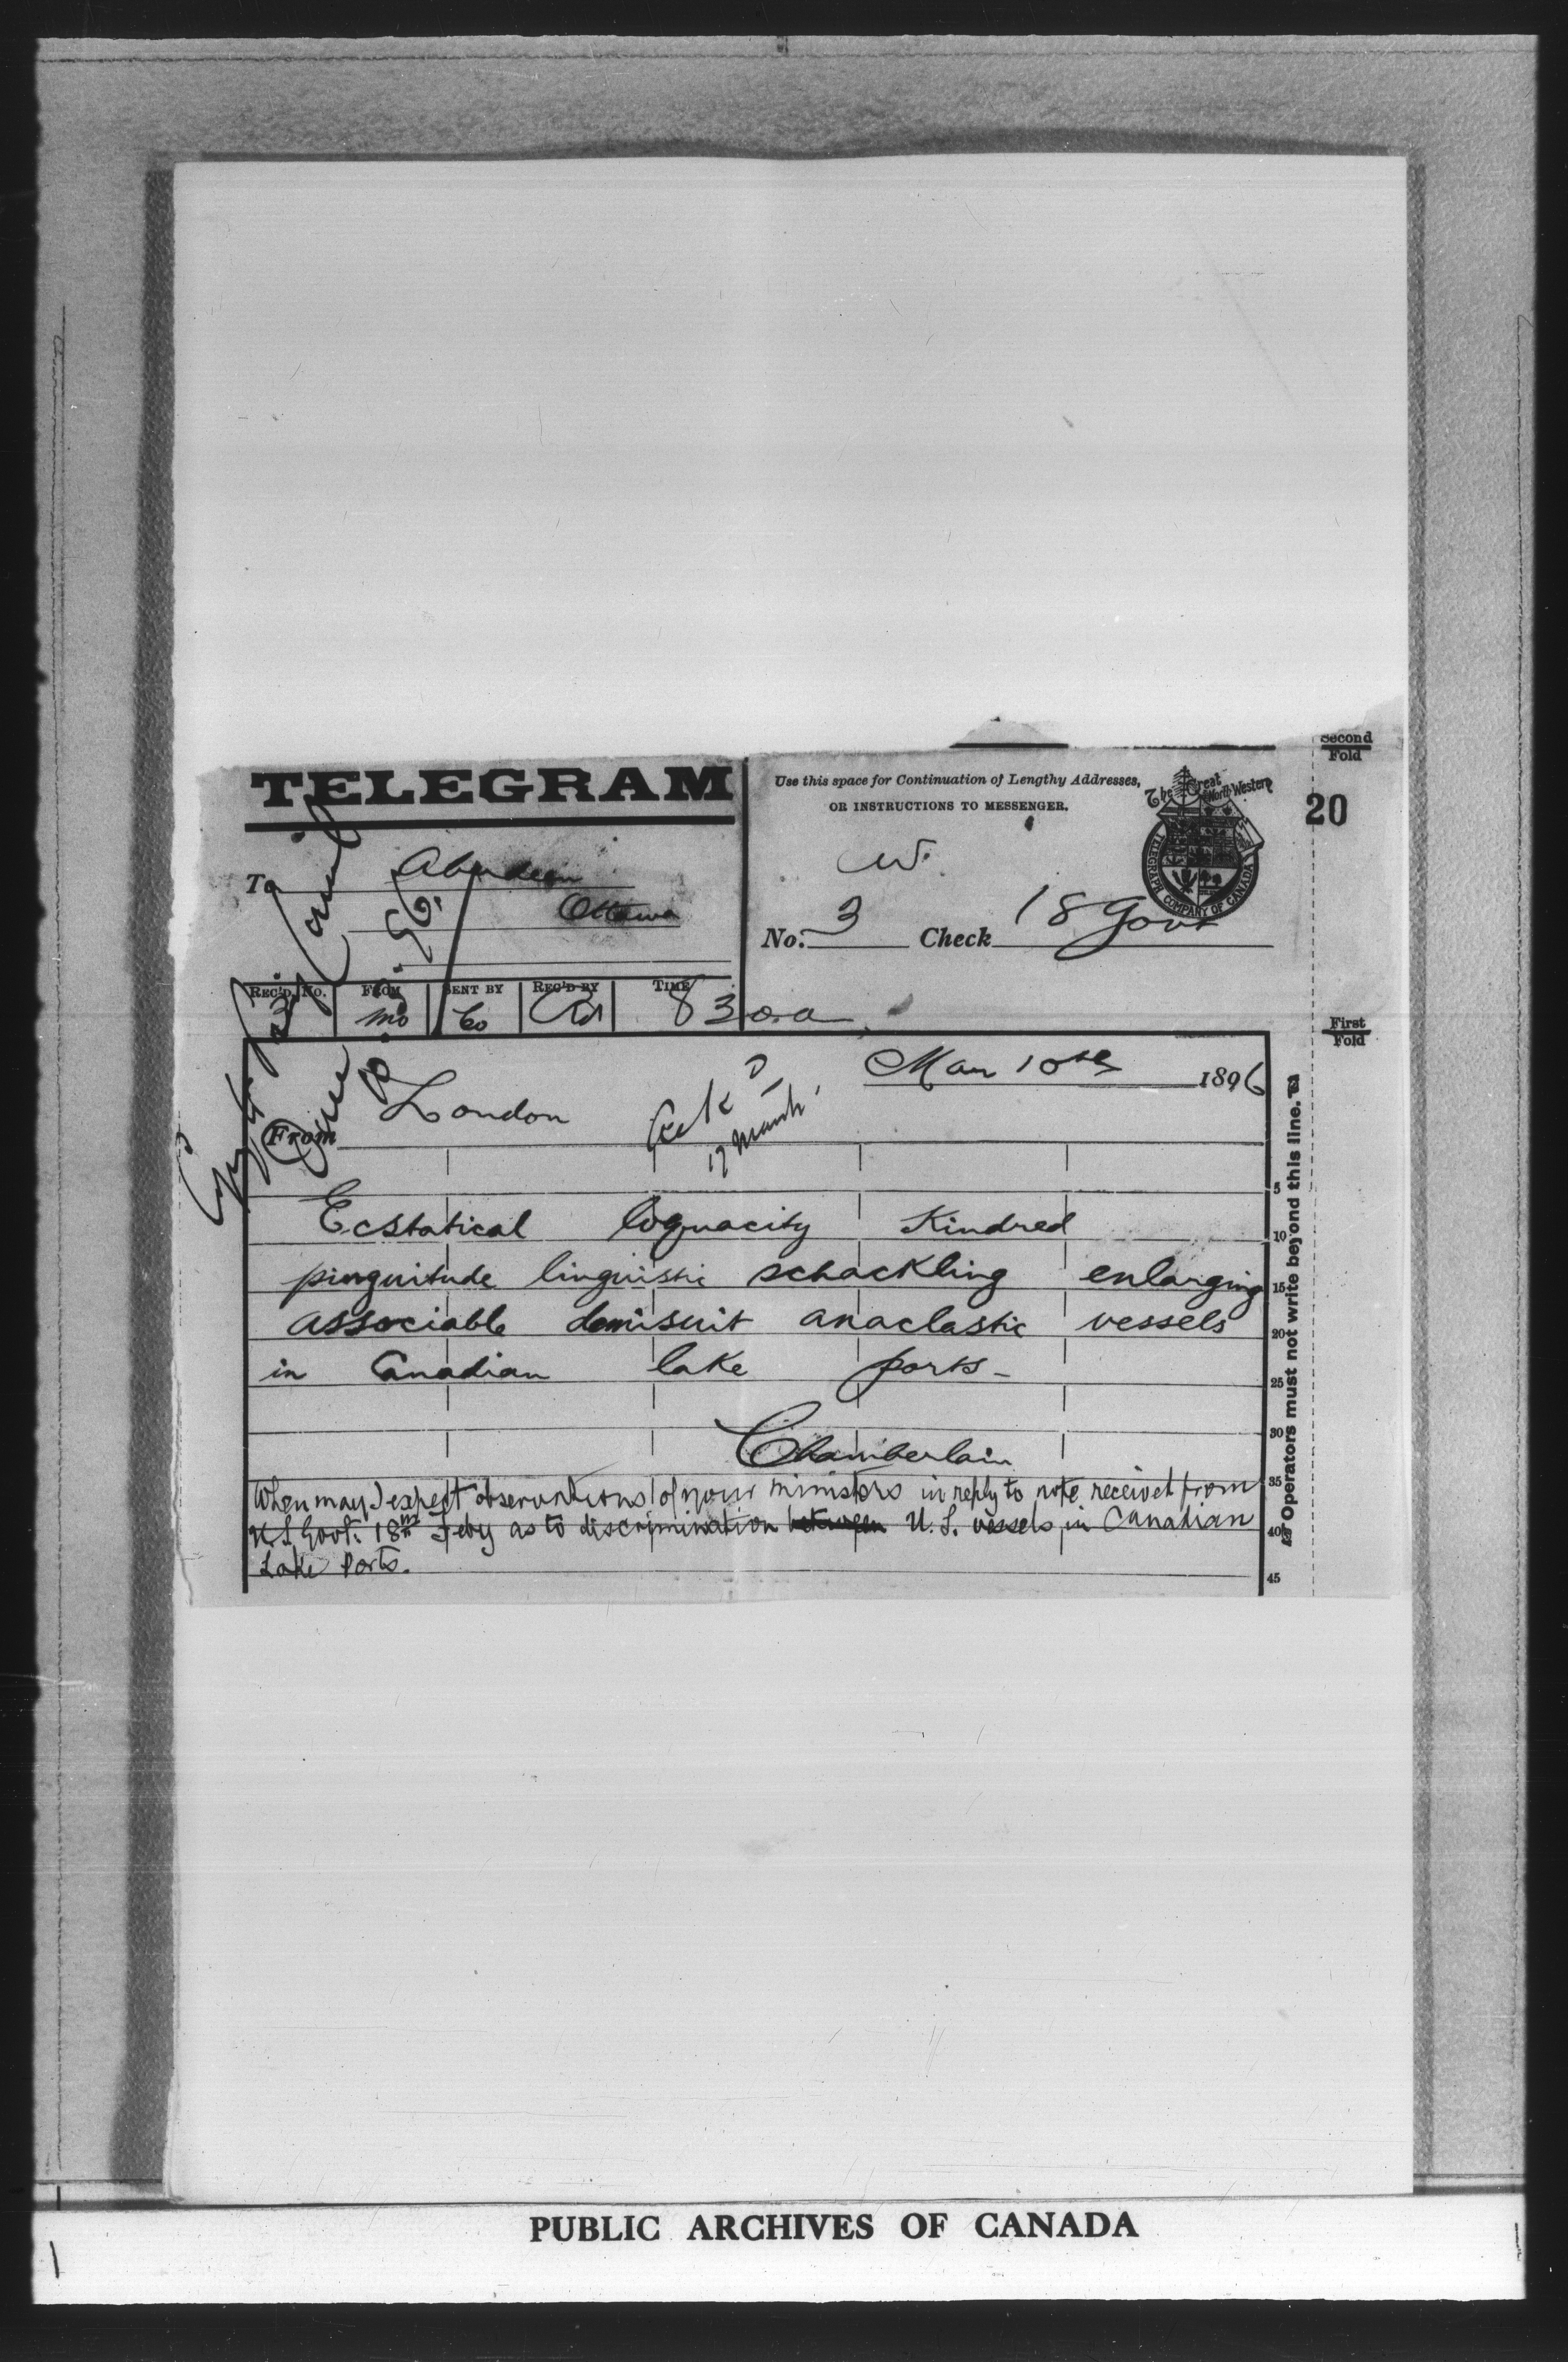 Second
Fold
TELEGRAM
Use this space for Continuation of Lengthy Addresses,
OR INSTRUCTIONS TO MESSENGER.
The Great North Western
TELEGRAPH COMPANY OF CANADA
20
To Aberdeen
Ottawa
W.
No. 3 Check 18 Govt
REC'D. No. FROM SENT BY REC'D BY TIME
Mo Co 830a
First
Fold
Mar 10th 1896
From London
Ack'd
17 March
Operators must not write beyond this line.
5
Ecstatical loquacity Kindred
10
pinguitude linguistic schackling enlarging
15
associable demisuit anaclastic vessels
20
in Canadian lake ports -
25
30
Chamberlain
35
When may I expect observations of your ministers in reply to note received from
U.S. Govt. 18th Feby as to discrimination between U.S. vessels in Canadian
40
Lake Ports.
45
PUBLIC ARCHIVES OF CANADA